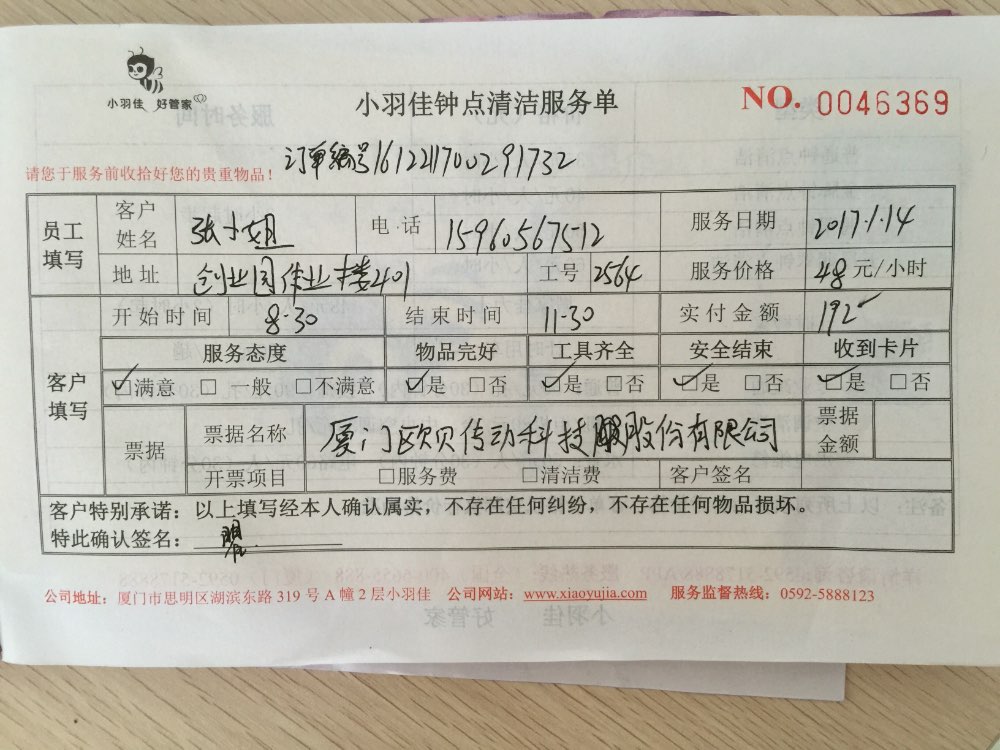 小羽佳 好管家
小羽佳钟点清洁服务单
NO. 0046369
订单编号161221700291732
请您于服务前收拾好您的贵重物品！
员工填写 客户姓名 张小姐 电·话 15960567512 服务日期 2017.1.14
地址 创业园伟业楼401 工号 2564 服务价格 48元/小时
客户填写 开始时间 8.30 结束时间 11.30 实付金额 192
服务态度 物品完好 工具齐全 安全结束 收到卡片
☑满意 □一般 □不满意 ☑是 □否 ☑是 □否 ☑是 □否 ☑是 □否
票据 票据名称 厦门欧贝传动科技股份有限公司 票据金额
开票项目 □服务费 □清洁费 客户签名
客户特别承诺：以上填写经本人确认属实，不存在任何纠纷，不存在任何物品损坏。
特此确认签名：
公司地址：厦门市思明区湖滨东路 319 号 A 幢 2 层小羽佳 公司网站：www.xiaoyujia.com 服务监督热线：0592-5888123